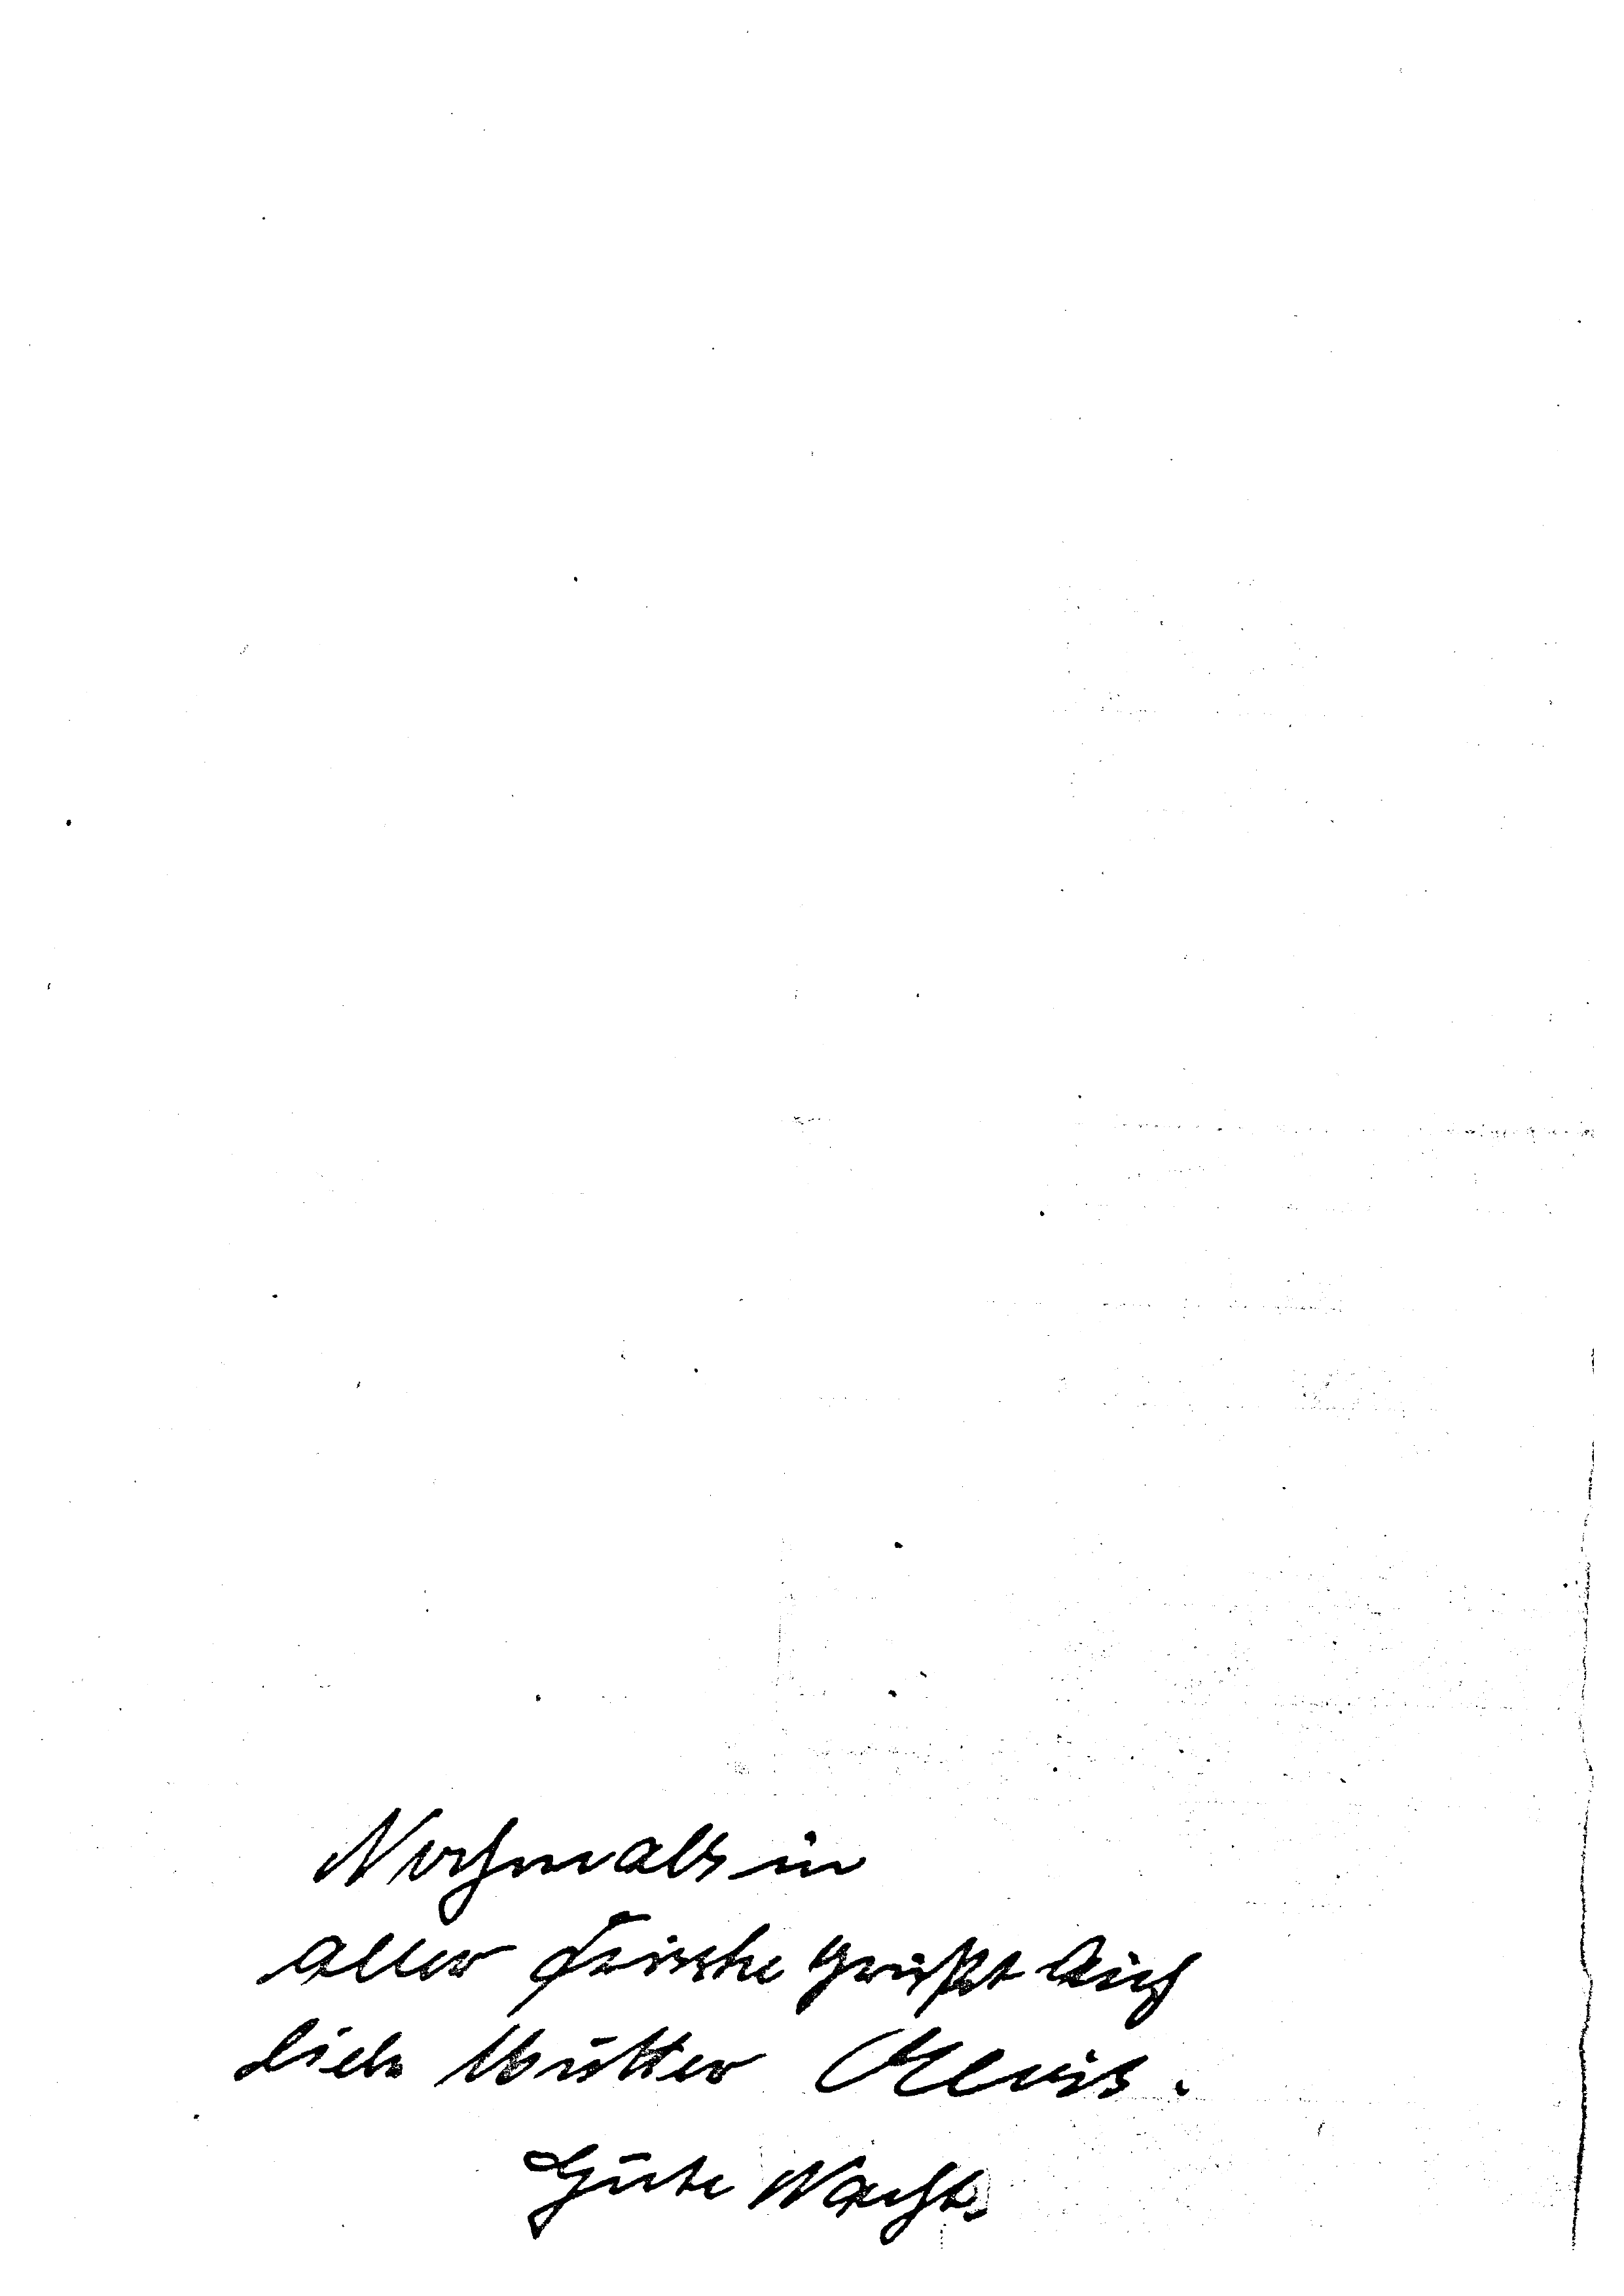 Nochmals in
aller Frische grüßt Dich
Liebe Mutter Alois.
Gute Nacht.